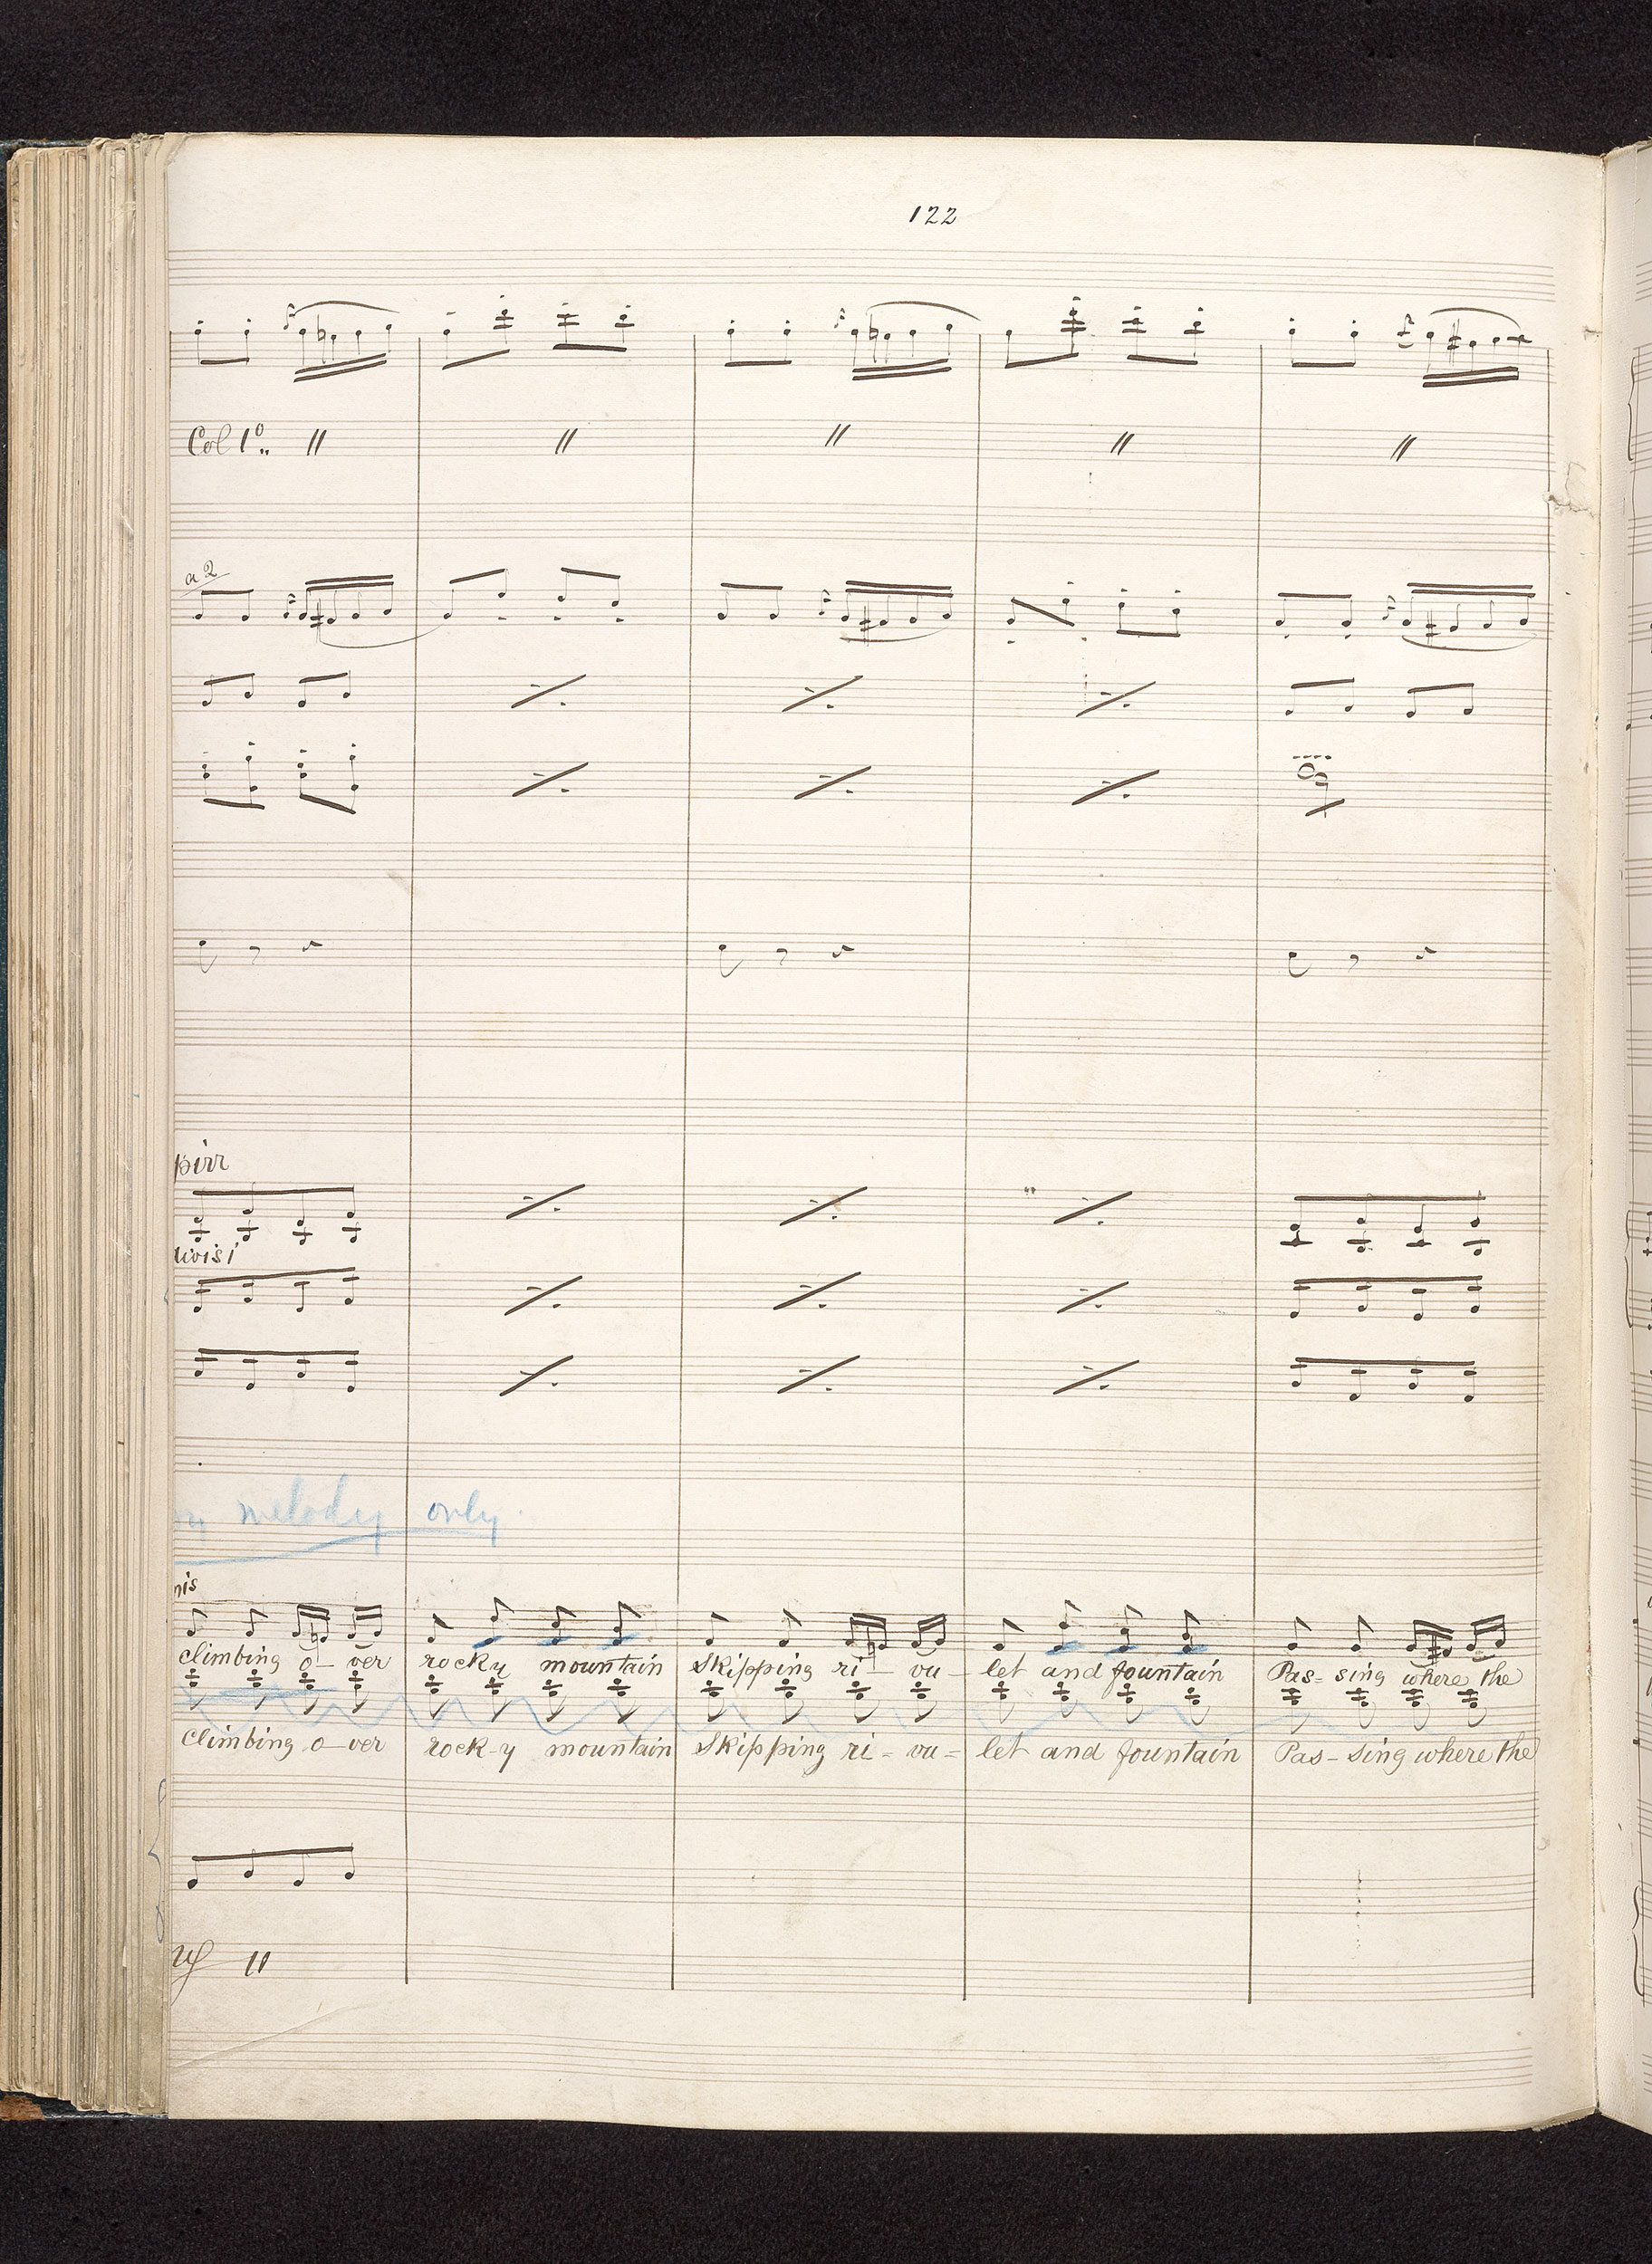 122
Col 1º.. 〃 〃 〃 〃 〃
a 2
pizz
divisi
melody only
nis
climbing o- ver rocky mountain Skipping ri- vu- let and fountain Pas- sing where the
climbing o-ver rock-y mountain Skipping ri= vu= let and fountain Pas- sing where the